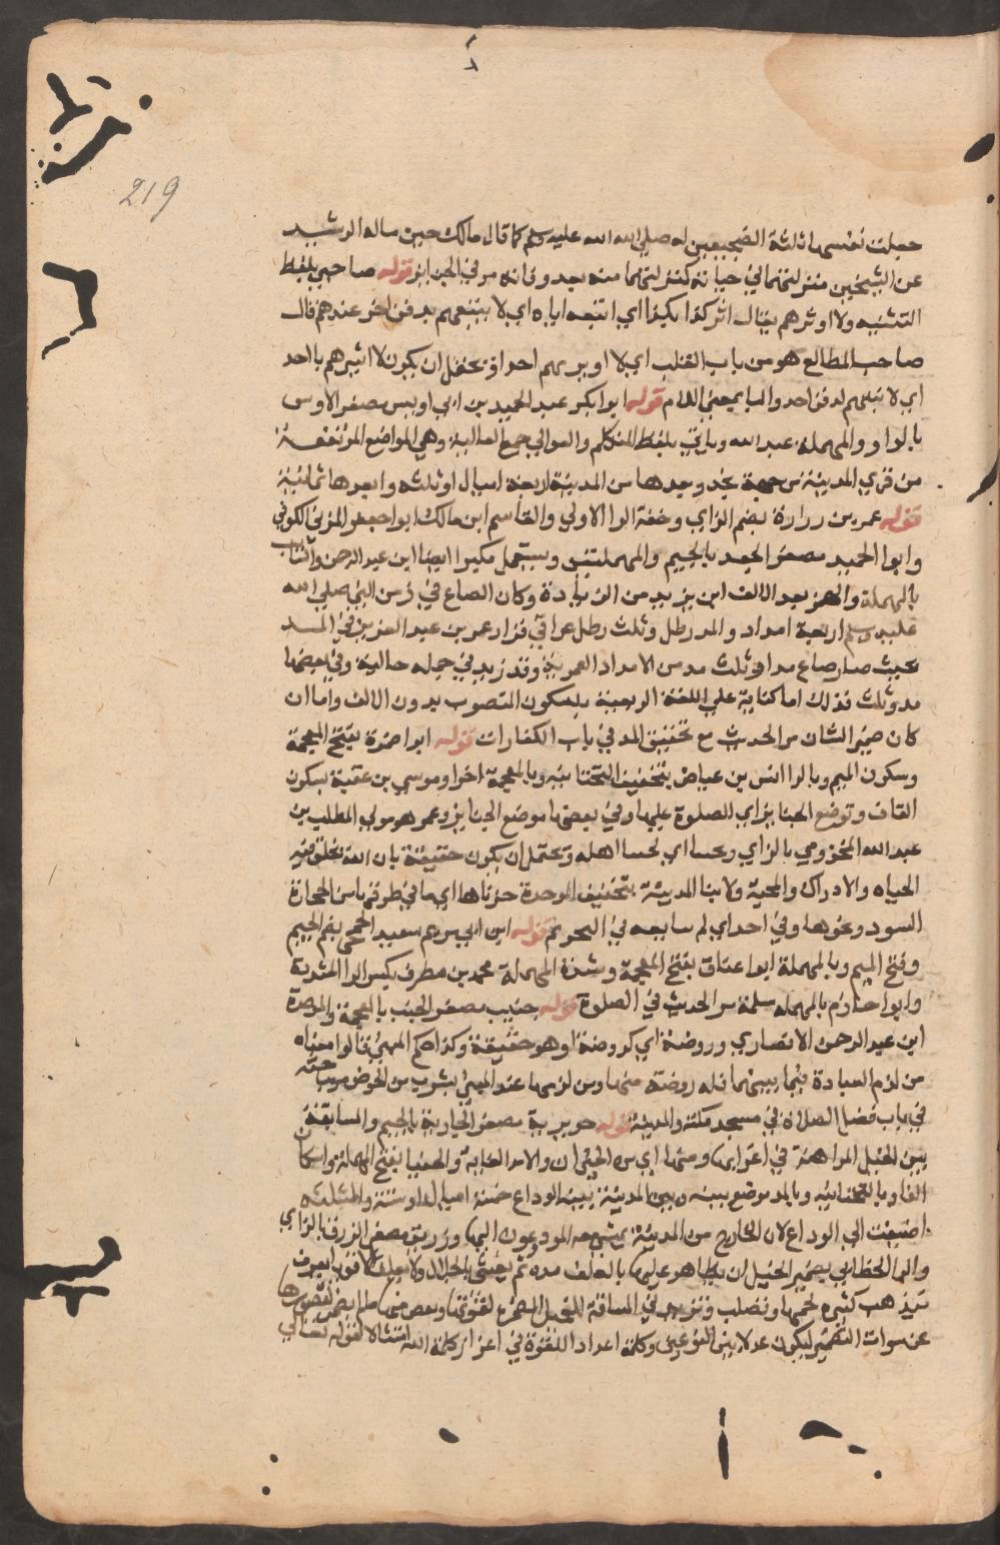 219
جعلت نفسها ثالثة الضجيعين له صلى الله عليه وسلم كما قال مالك حين ساله الرشيد
عن الشيخين منزلتهما في حياته كمنزلتهما منه بعد وفاته مر في الجنائز قوله صاحبي بلفظ
التثنيه ولا اوثرهم يقال اثر كذا بكذا اي اتبعه اياه اي لا يتبعهم بدفن اخر عندهم قال
صاحب المطالع هو من باب القلب اي لا اوثر بهم احدا ويحتمل ان يكون لا اثيرهم باحد
اي لا لدفن احد والبا بمعنى اللام قوله ابو بكر عبد الحميد بن ابي اويس مصغر الاوس
بالواو والمهملة عبد الله وياتي بلفظ المتكلم والعوالي جمع العالية وهي المواضع المرتفعة
من قري المدينة من جهة نجد وبعدها من المدينة اربعة اميال او ثلثة وابعدها ثمانية
قوله عمرو بن زرارة بضم الزاي وخفة الرا الاولي والقاسم ابن مالك ابو جعفر المزني الكوفي
وابوا الجعيد مصغر الجعد بالجيم والمهملتين ويستعمل مكبرا ايضا ابن عبد الرحمن والسايب
بالمهملة والهمز بعد الالف ابن يزيد من الزيادة وكان الصاع في زمن النبي صلى الله
عليه وسلم اربعة امداد والمد رطل وثلث رطل عراقي فزاد عمر بن عبد العزيز في المد
بحيث صار صاع مدا وثلث مد من الامداد العمرية وقد زيد في جملة حالية وفي بعضها
مد وثلث فذلك اما كتابة على اللغة الربعية يكتبون المنصوب بدون الالف واما ان
كان ضمير الشان مر الحديث مع تحقيق المد في باب الكفارات قوله ابوا ضمرة بفتح المعجمة
وسكون الميم وبالرا انس بن عياض بتخفيف التحتانيه وبالمعجمة اخرا وموسي بن عقبة بسكون
القاف وتوضع الجنايز اي للصلوة عليها وفي بعضها موضع الجنايز وعمرو هو مولي المطلب بن
عبد الله المخزومي بالزاي ويحبنا اي يحبنا اهله ويحتمل ان يكون حقيقة بان الله يخلق فيه
الحياه والادراك والمحبة ولابتا المدينة بتخفيف الموحدة حرتاها اي ما في طرفيها من الحجارة
السود ونحوها وفي احد اي لم يتابعه في التحريم قوله ابن ابي مريم سعيد الجمحي بضم الجيم
وفتح الميم وبالمهملة ابوا غسان بفتح المعجمة وشدة المهملة محمد بن مطرف بكسر الرا المشددة
وابوا حازم بالمهملة سلمة مر الحديث في الصلوة قوله خبيب مصغر الخبب بالمعجمة والموحدة
ابن عبد الرحمن الانصاري وروضة اي كروضة او هو حقيقة وكذا حكم المنبر قالوا معناه
من لزم العبادة فيما بينهما فله روضة منها ومن لزمها عند المنبر يشرب من الحوض مر مباحثه
في باب فضل الصلاة في مسجد مكة والمدينة قوله جويرية مصغر الجارية بالجيم والمسابقة
بين الخيل المراهنة في اجرائها ومنها اي من الخيل ان والامد الغاية والحفيا بفتح المهملة واسكان
الفا وبالتحتانية وبالمد موضع بينه وبين المدينة ثنية الوداع خمسة اميال او ستة والثنية
اضيفت الى الوداع لان الخارج من المدينة يمشي معه المودعون اليها وزريق مصغر الزرق بالزاي
والرا الخطابي تضمير الخيل ان يظاهر عليها بالعلف مدة ثم يغشى بالجلال ولا يعلف الا قوتا ليعرق
فيذهب كثرة لحمها وتصلب وزيد في المسافة للخيل المضمرة لقوتها ونقص منها لما لم يضمر لقصورها
عن سوات التضمير ليكون عدلا بين النوعين وكله اعداد للقوة في اعزاز كلمة الله امتثالا لقوله تعالى